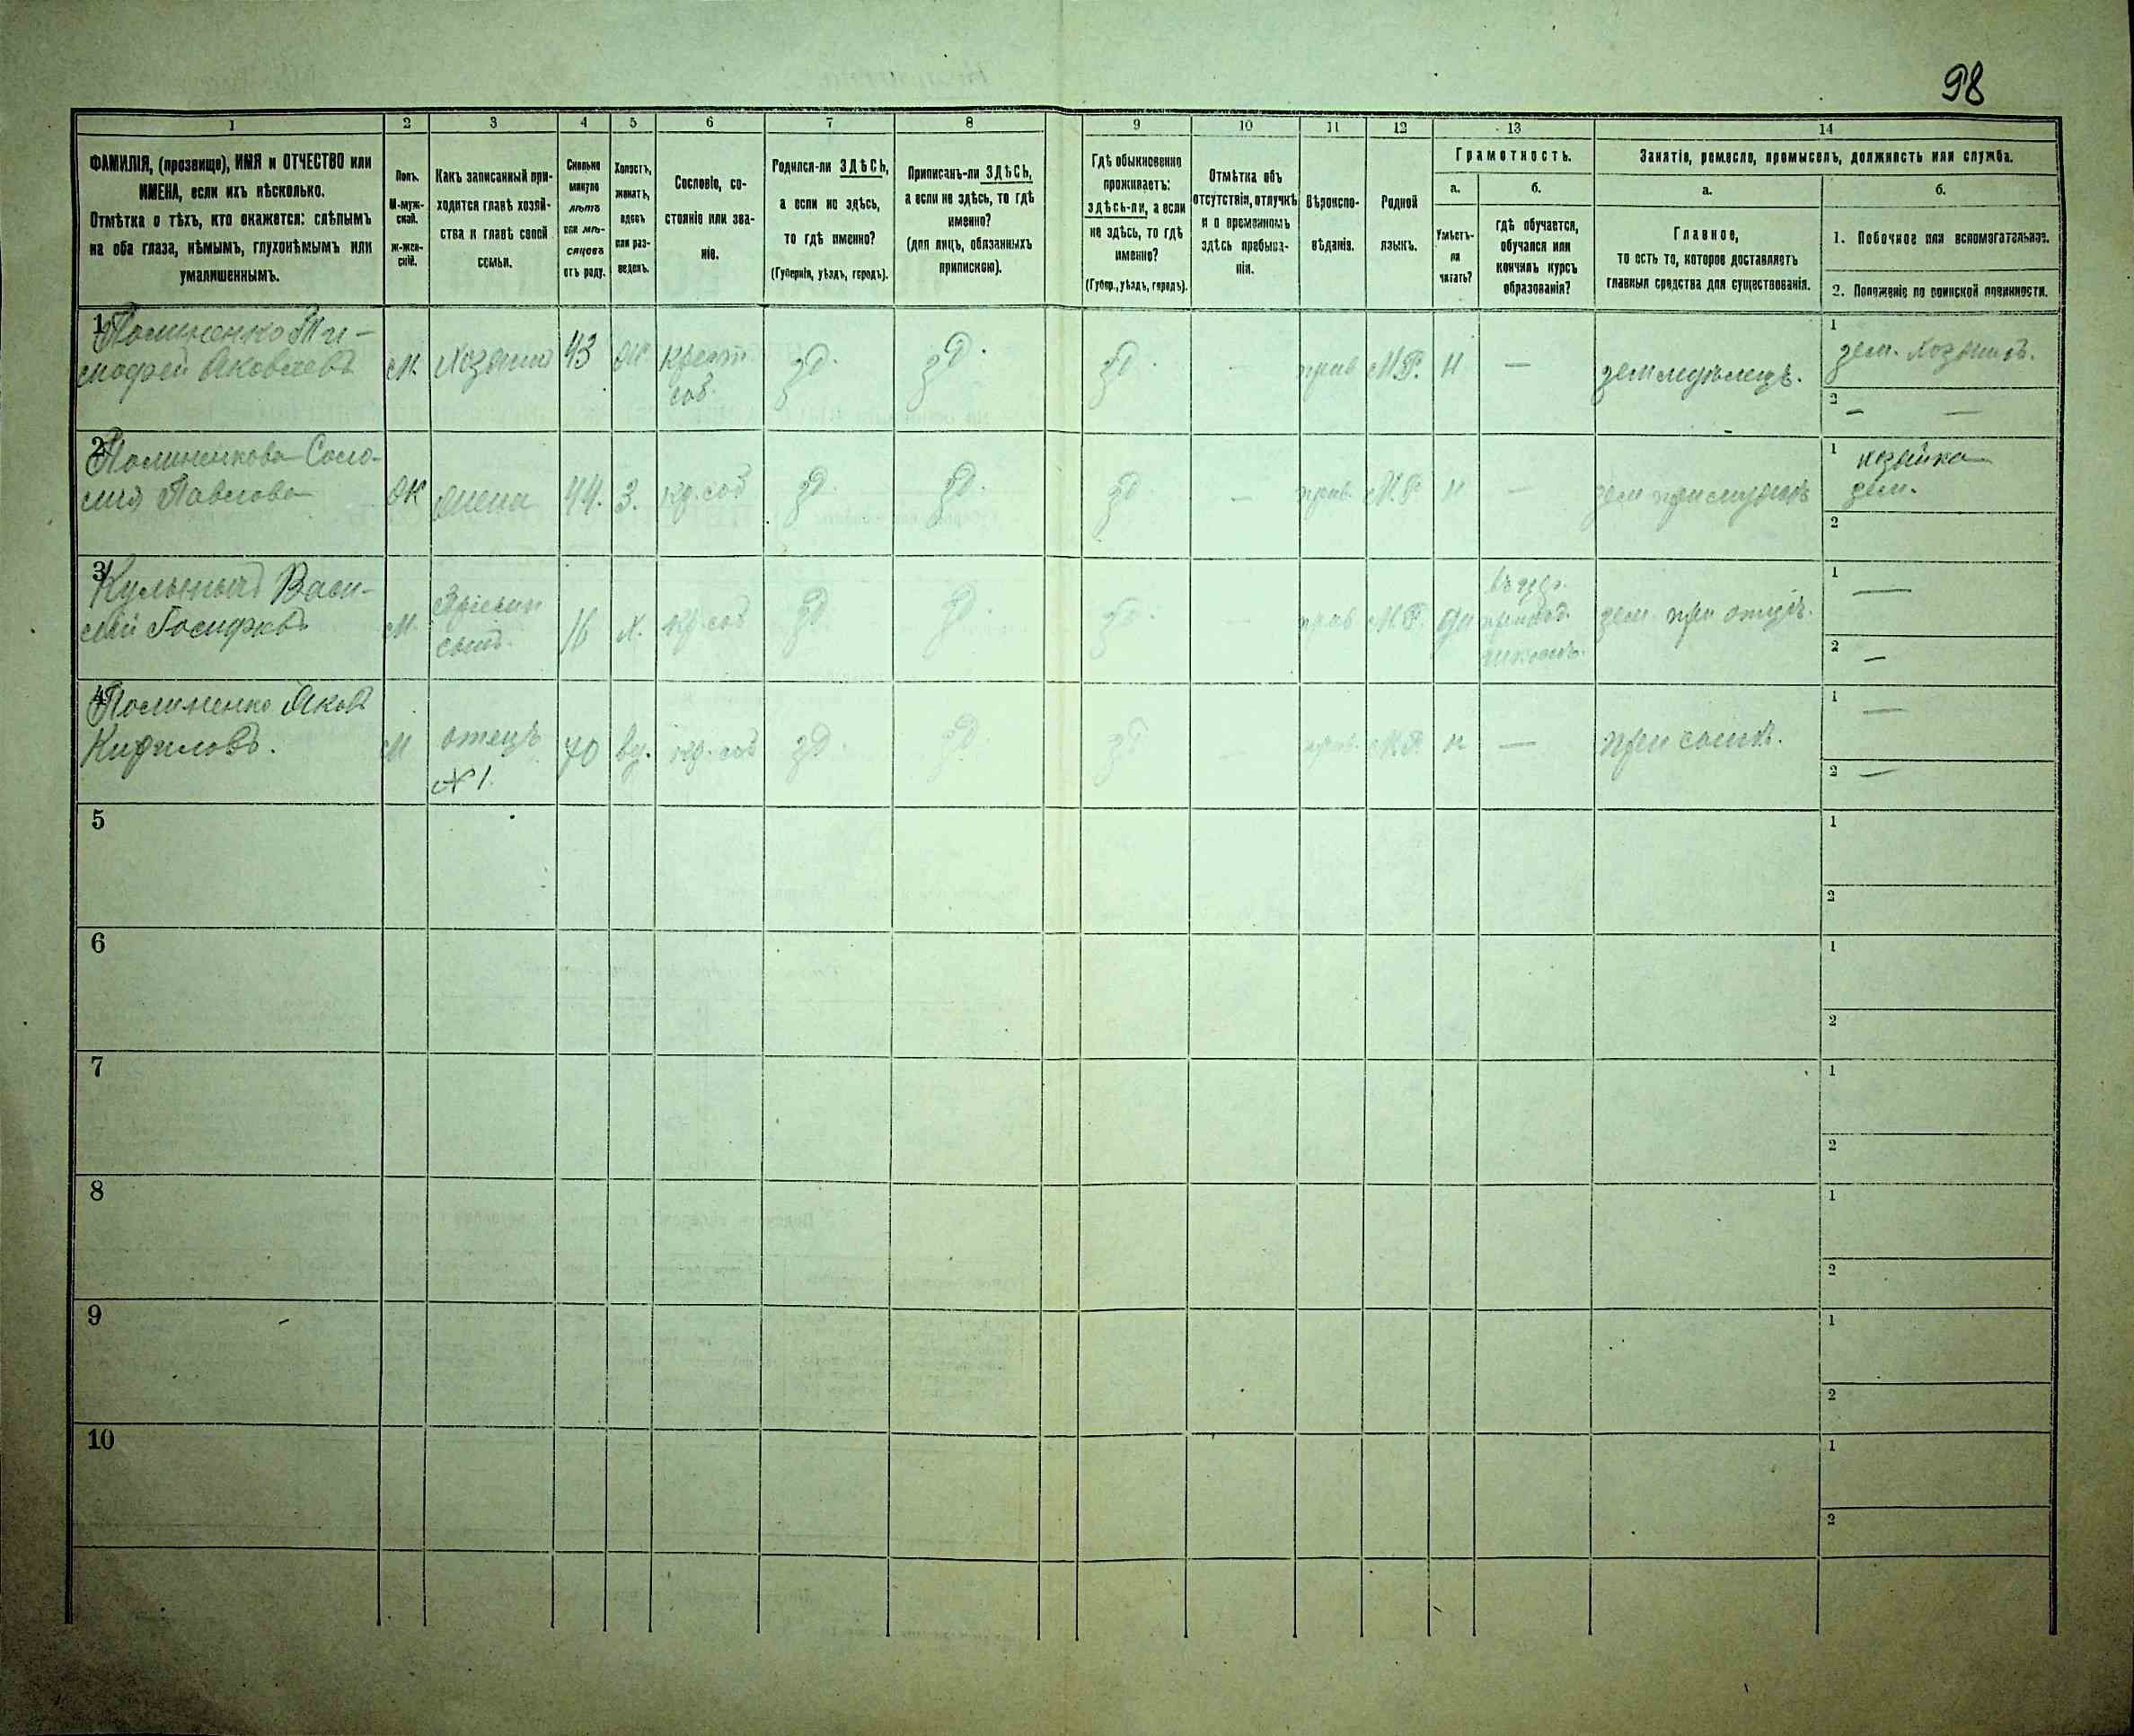 98
1 2 3 4 5 6 7 8 9 10 11 12 13 14
ФАМИЛІЯ, (прозвище), ИМЯ и ОТЧЕСТВО или
ИМЕНА, если ихъ нѣсколько.
Отмѣтка о тѣхъ, кто окажется: слѣпымъ
на оба глаза, нѣмымъ, глухонѣмымъ или
умалишеннымъ.
Полъ.
М-муж-
ской.
Ж-жен-
скій.
Какъ записанный при-
ходится главѣ хозяй-
ства и главѣ своей
семьи.
Сколько
минуло
лѣтъ
или мѣ-
сяцевъ
отъ роду.
Холостъ,
женатъ,
вдовъ
или раз-
веденъ.
Сословіе, со-
стояніе или зва-
ніе.
Родился-ли ЗДѢСЬ,
а если не здѣсь,
то гдѣ именно?
(Губернія, уѣздъ, городъ).
Приписанъ-ли ЗДѢСЬ,
а если не здѣсь, то гдѣ
именно?
(для лицъ, обязанныхъ
припискою).
Гдѣ обыкновенно
проживаетъ:
здѣсь-ли, а если
не здѣсь, то гдѣ
именно?
(Губер., уѣздъ, городъ).
Отмѣтка объ
отсутствіи, отлучкѣ
и о временномъ
здѣсь пребыва-
ніи.
Вѣроиспо-
вѣданіе.
Родной
языкъ.
Грамотность.
а.
Умѣетъ-
ли
читать?
б.
гдѣ обучается,
обучался или
кончилъ курсъ
образованія?
Занятія, ремесло, промыселъ, должность или служба.
а.
Главное,
то есть то, которое доставляетъ
главныя средства для существованія.
б.
1. Побочное или вспомогательное.
2. Положеніе по воинской повинности.
1
Ти-
мофей Яковлевъ
М. Хозяинъ 43 Ж Крест.
соб.
зд. зд. зд. — прав М.Р. н — земледѣлецъ.
1 зем. хозяинъ.
2 — —
2
Соло-
Павлова
Ж жена 44. З. кр. соб зд. зд. зд. — прав. М.Р н — зем при мужѣ
1 хозяйка
зем.
2
3
Васи-
М. 16 Х. кр. соб зд. зд. зд. — прав М.Р. да
зем. при отцѣ.
1 —
2 —
4
Яков
Кириловъ.
М отецъ
№ 1.
70 вд. кр. соб зд. зд. зд — прав. М.Р. н — при сынѣ.
1 —
2 —
5 1
2
6 1
2
7 1
2
8 1
2
9 1
2
10 1
2